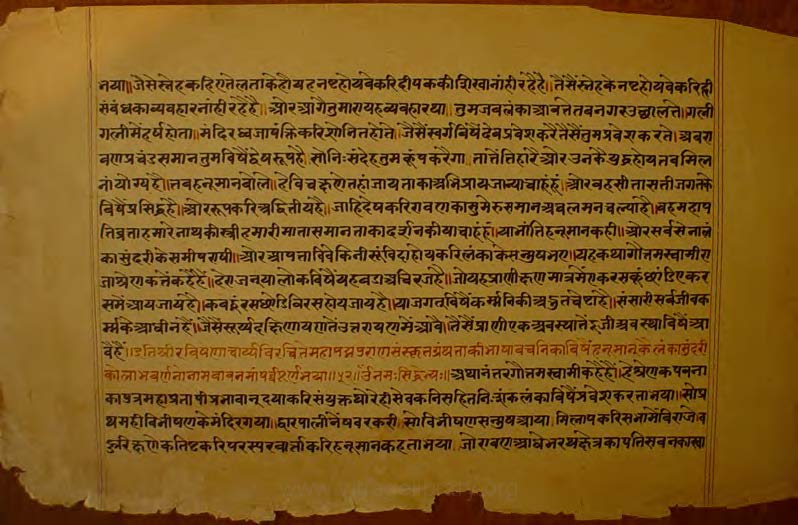 भया॥जैसेस्नेहकहिएतेलताकेहोयहनष्टहोयवेकरिदीपककीशिखानांहीरहैहै॥तैसैंस्नेहकेनष्टहोयवेकरिद्दी
संबंधकाव्यवहारनांहीरहैहै॥औरआगैतुमारायहव्यवहारथा तुमजबलंकाआवतेतबनगरउछालते॥गली
गलीमेंहर्षहोता॥मंदिरध्वजापंक्तिकरिशोनितहोते॥जैसैंस्वर्गविषैंदेवप्रवेशकरेंतैसेंतुमप्रवेशकरते॥अबरा
वणप्रचंडसमानतुमविषैंद्वेयरूपहै॥सोनिःसंदेहतुमकूंपकरैगा तातैंतिहारेऔरउनकेयुद्धहोयतबमिल
नांयोग्यहै॥तबहनूमानबोलो॥हेविचक्षणेतहांजायताकाअभिप्रायजान्याचाहूंहूं॥औरवहसीतासतीजगतके
विषैंप्रसिद्धहै॥औररूपकरिअद्वितीयहै॥जाहिदेषकरिरावणकासुमेरुसमानअचलमनचल्याहै॥वहमहाप
तिव्रताहमारेनाथकीस्त्रीहमारीमातासमानताकादर्शनकीयाचाहूंहूं॥यानांतिहनूमानकही॥औरसर्वसेनालं
कासुंदरीकेसमीपराषी॥औरआपनाविवेकिनीसूंविदाहोयकरिलंकाकेसन्मुषभए॥यहकथागौतमस्वामीरा
जाश्रेणकतेंकहैंहैं॥हेराजनयालोकविषैंयहबडाअचिरजहै॥जोयहप्राणीक्षणमात्रमेंएकरसकूंछांडिएकर
समेंआयजायहै॥कबहूंरसछांडिविरसहोयजायहै॥याजगतविषैंकर्म्मनिकीअद्भुतचेष्टाहै॥संसारीसर्वजीवक
र्म्मकेआधीनहैं॥जैसैंसूर्यदक्षिणायणतेंउत्तरायणमेंआवै॥तैसैंप्राणीएकअवस्थातेंदूजीअवस्थाविषैंआ
वैहैं॥इतिश्रीरविषेणाचार्यविरचितेमहापद्मपुराणसंस्कृतग्रंथताकीभाषावचनिकाविषैंहनूमानकैलंकासुंदरी
कालाभवर्णनानामबावनमांपर्वपूर्णभया॥५२॥उँनमःसिद्धेभ्यः॥अथानंतरगौतमस्वामीकहैंहैं॥हेश्रेणकपवना
कापुत्रमहाप्रतापीप्रभावानदयाकरिसंयुक्तथोरेहीसेवकनिसहितनिःशंकलंकाविषैंप्रवेशकरताभया॥सोप्र
थमहीविनीषणकेमंदिरगया॥द्वारपालीनेंषबरकरी सोविनीषणसन्मुषआया मिलापकरिसभामेंविराजेव
हुरिक्षणेकतिष्टकरिपरस्परवार्त्ताकरिहनूमानकहताभया जोरावणआधेभरथक्षेत्रकापतिसबनकास्वा